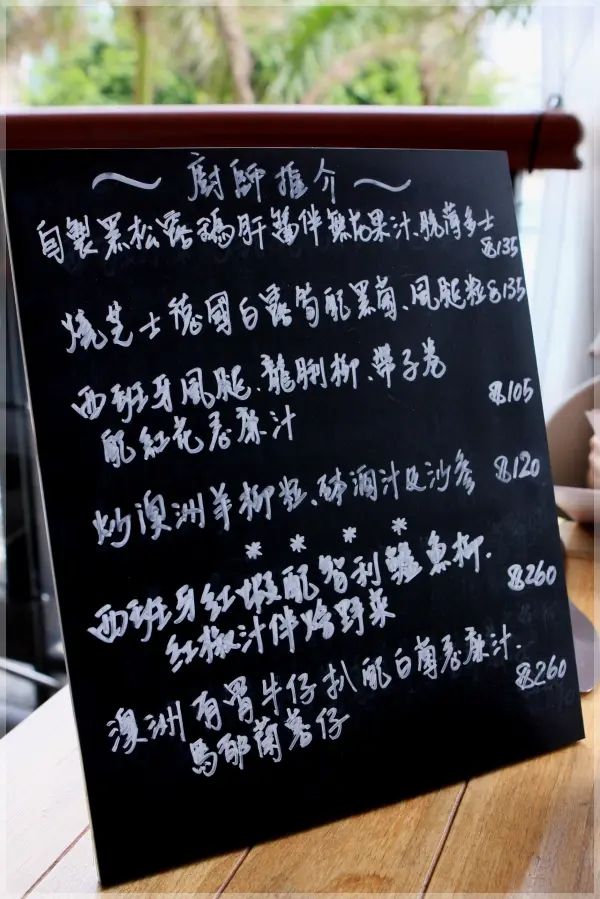 ～ 廚師推介 ～
自製黑松露鵝肝醬伴無花果汁、脆薄多士
$135
燒芝士德國白露筍配黑菌、風腿粒 $135
西班牙風腿、龍脷柳、帶子卷
$105
配紅花忌廉汁
炒澳洲羊柳粒、砵酒汁及沙參 $120
* * * *
西班牙紅椒配智利鱸魚柳.
$260
紅椒汁伴燴野菜
澳洲有骨牛仔扒配白蘑忌廉汁.
$260
馬耶蘭薯仔